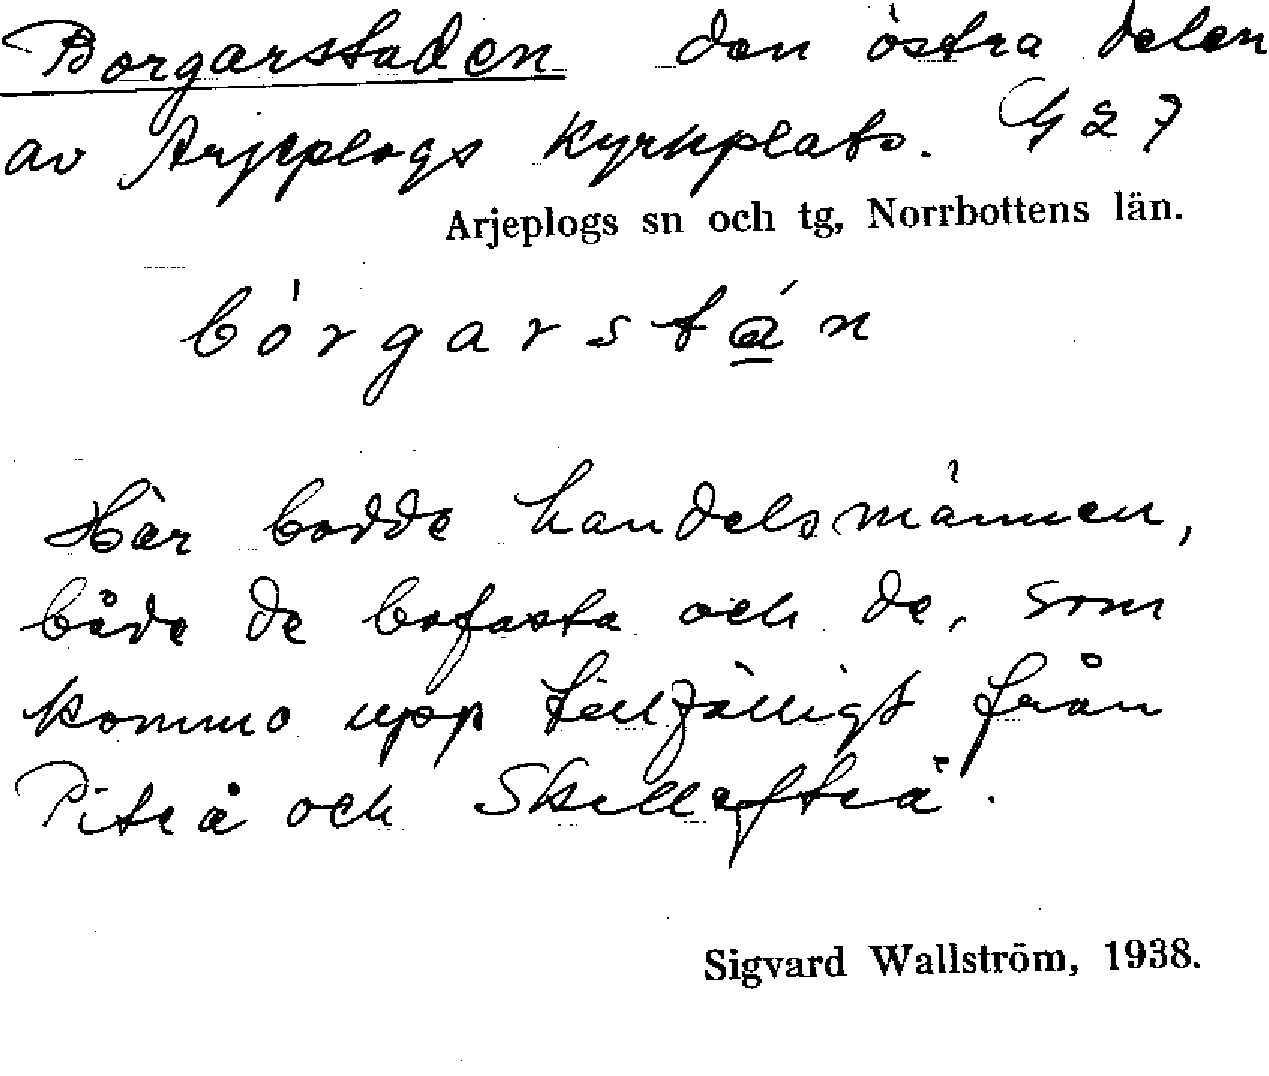 Borgarstaden den östra delen
av Arjeplogs kyrkplats. G 27
Arjeplogs sn och tg, Norrbottens län.
Här bodde handelsmännen,
både de bofasta och de, som
kommo upp tillfälligt från
Piteå och Skellefteå.
Sigvard Wallström, 1938.